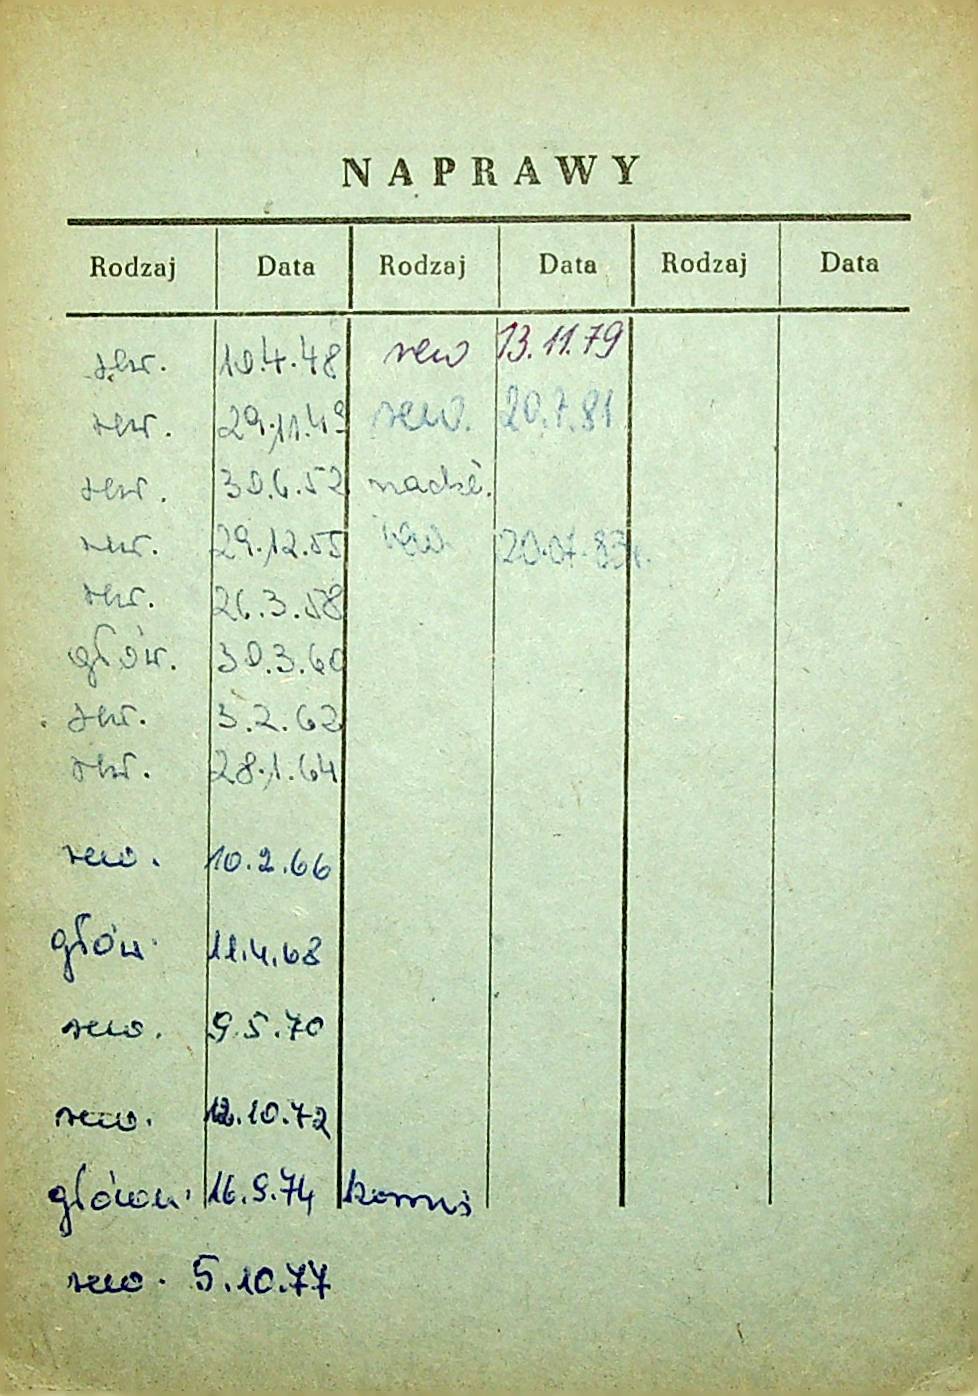 NAPRAWY
Rodzaj Data Rodzaj Data Rodzaj Data
rew. 10.4.48 rew 13.11.79
rew. 29.11.49 rew. 20.7.81
rew. 30.6.52
rew. 29.12.55 rew. 20.07.83r.
rew. 26.3.58
głów. 30.3.60
rew. 3.2.62
rew. 28.1.64
rew. 10.2.66
głów. 11.4.68
rew. 9.5.70
rew. 12.10.72
główn. 16.9.74
rew. 5.10.77